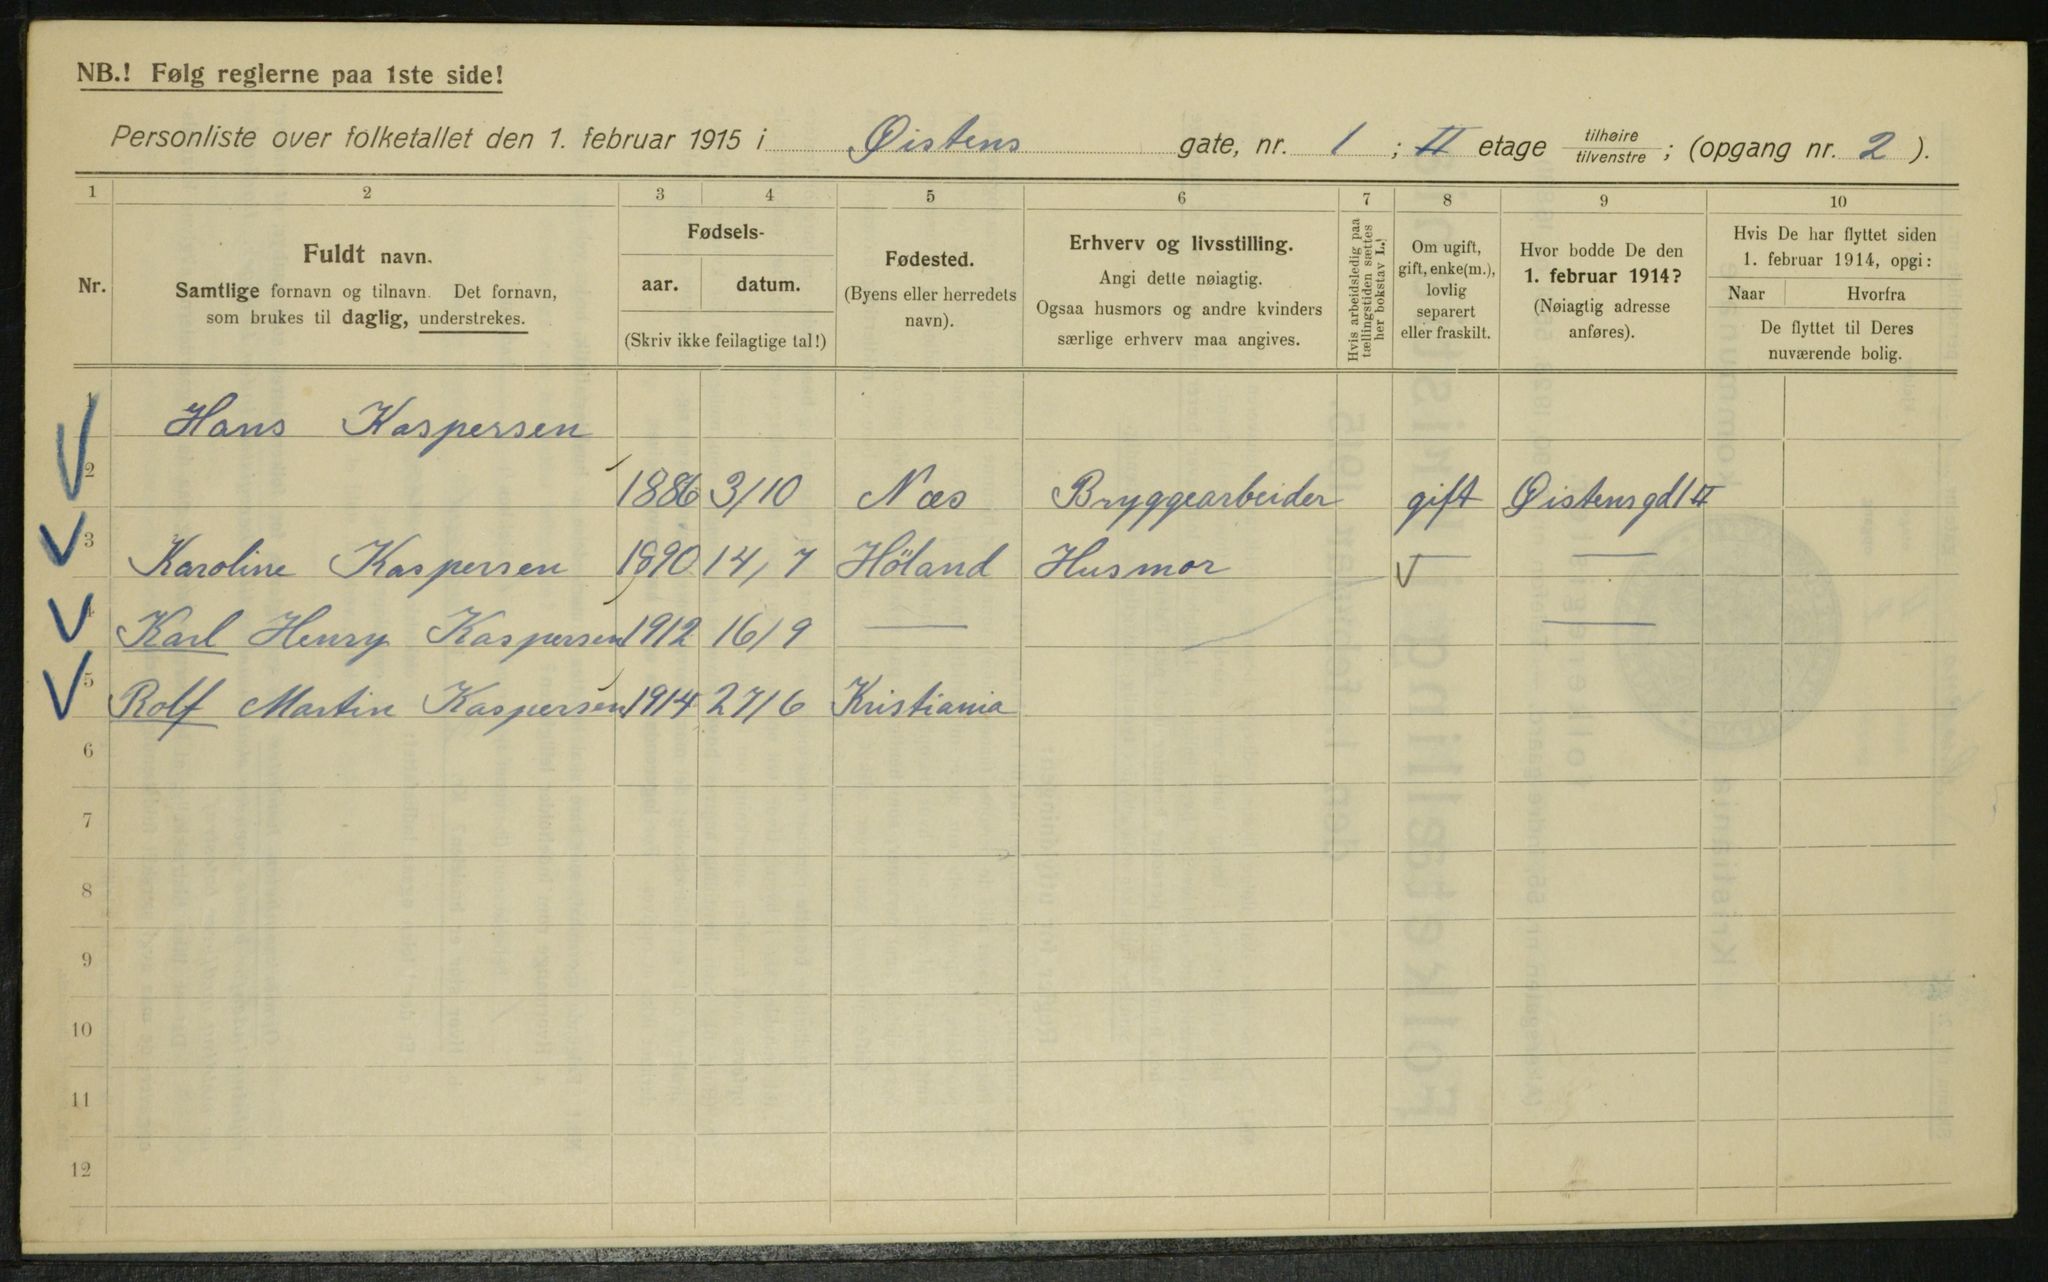 NB.! Følg reglerne paa 1ste side!
Personliste over folketallet den 1. februar 1915 i Øistens gate, nr. 1 ; II etage tilhøire / tilvenstre ; (opgang nr. 2 ).
1 2 3 4 5 6 7 8 9 10
Nr.
Fuldt navn.
Samtlige fornavn og tilnavn. Det fornavn,
som brukes til daglig, understrekes.
Fødsels-
aar. datum.
(Skriv ikke feilagtige tal!)
Fødested.
(Byens eller herredets
navn).
Erhverv og livsstilling.
Angi dette nøiagtig.
Ogsaa husmors og andre kvinders
særlige erhverv maa angives.
Hvis arbeidsledig paa
tællingstiden sættes
her bokstav L.!
Om ugift,
gift, enke(m.),
lovlig
separert
eller fraskilt.
Hvor bodde De den
1. februar 1914?
(Nøiagtig adresse
anføres).
Hvis De har flyttet siden
1. februar 1914, opgi:
Naar Hvorfra
De flyttet til Deres
nuværende bolig.
1 Hans Kaspersen
2 1886 3/10 Næs Bryggearbeider gift Øistensgd 1 II
3 Karoline Kaspersen 1890 14/7 Höland Husmor —
4 Karl Henry Kaspersen 1912 16/9 — —
5 Rolf Martin Kaspersen 1914 27/6 Kristiania
6
7
8
9
10
11
12